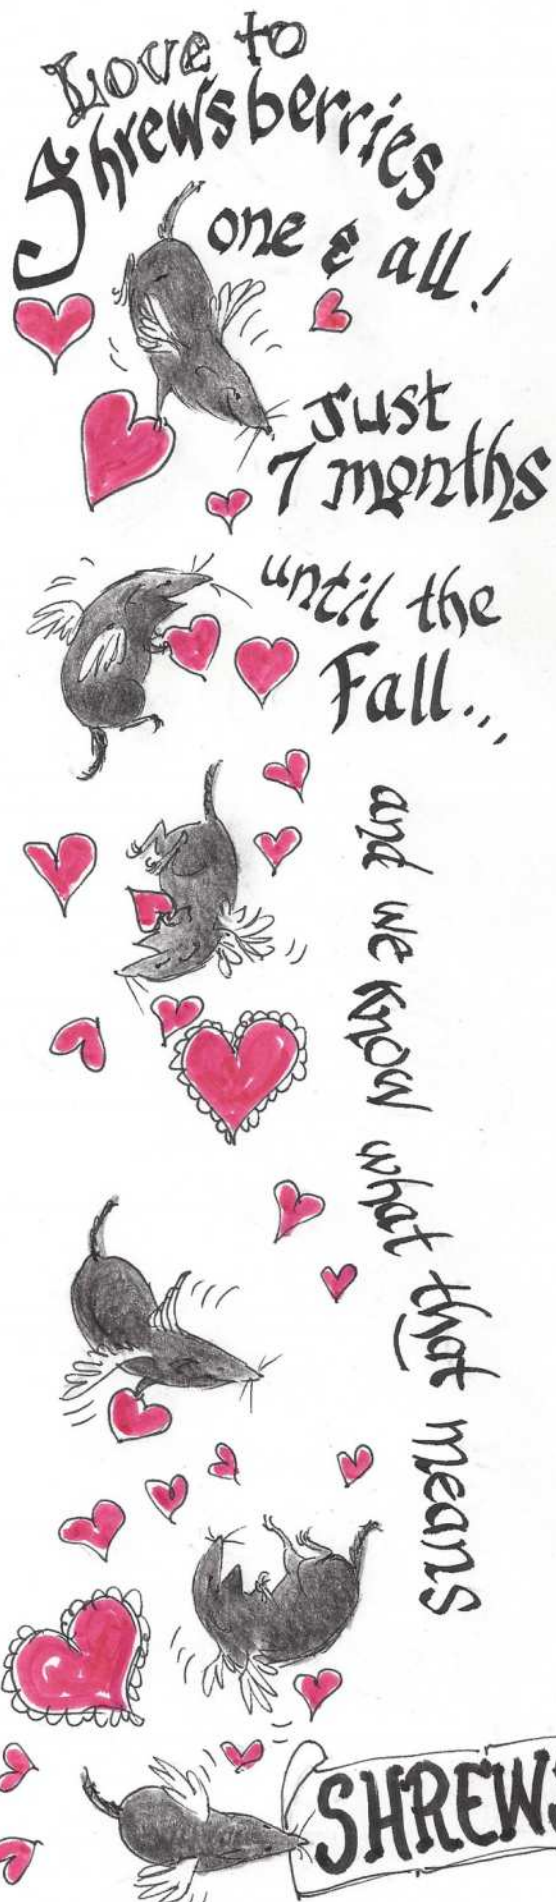 Love to
Shrewsberries
one & all!
Just
7 months
until the
Fall...
and we know what that means
SHREWS